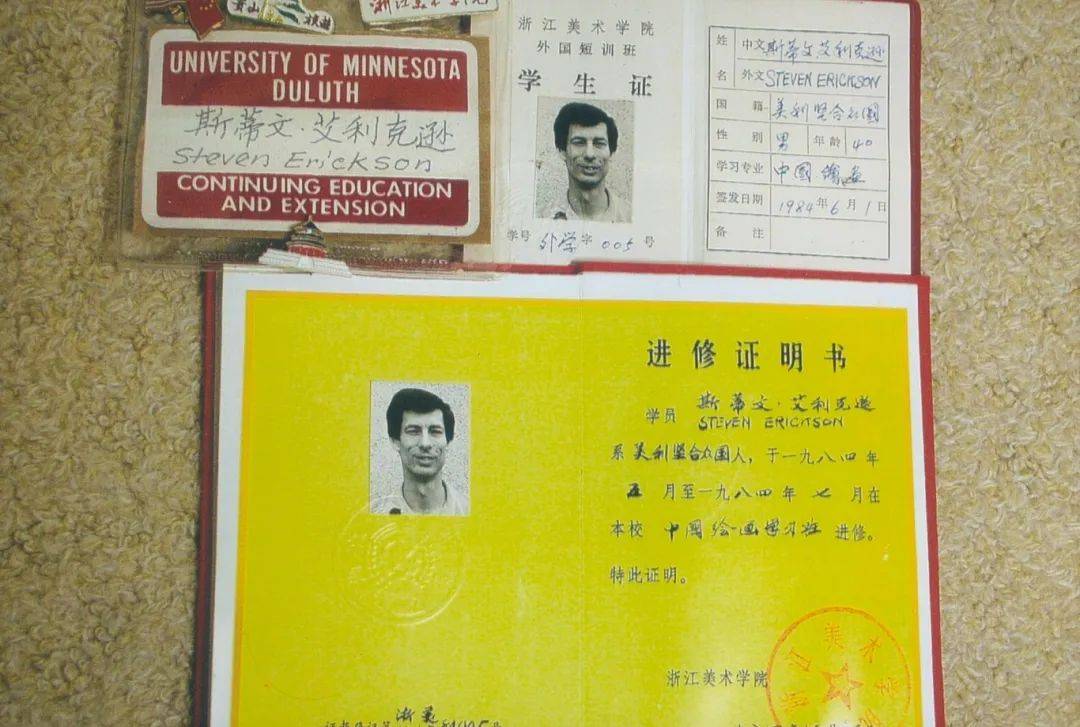 萧山
旅游
浙江美术学院
UNIVERSITY OF MINNESOTA
DULUTH
斯蒂文·艾利克逊
Steven Erickson
CONTINUING EDUCATION
AND EXTENSION
浙江美术学院
外国短训班
学生证
学号 外学字 005 号
姓名 中文 斯蒂文艾利克逊
外文 STEVEN ERICKSON
国籍 美利坚合众国
性别 男 年龄 40
学习专业 中国绘画
签发日期 1984年6月1日
备注
进修证明书
学员 斯蒂文·艾利克逊
STEVEN ERICKSON
系美利坚合众国人,于一九八四年
五月至一九八四年七月在
本校 中国绘画学习班 进修。
特此证明。
浙江美术学院